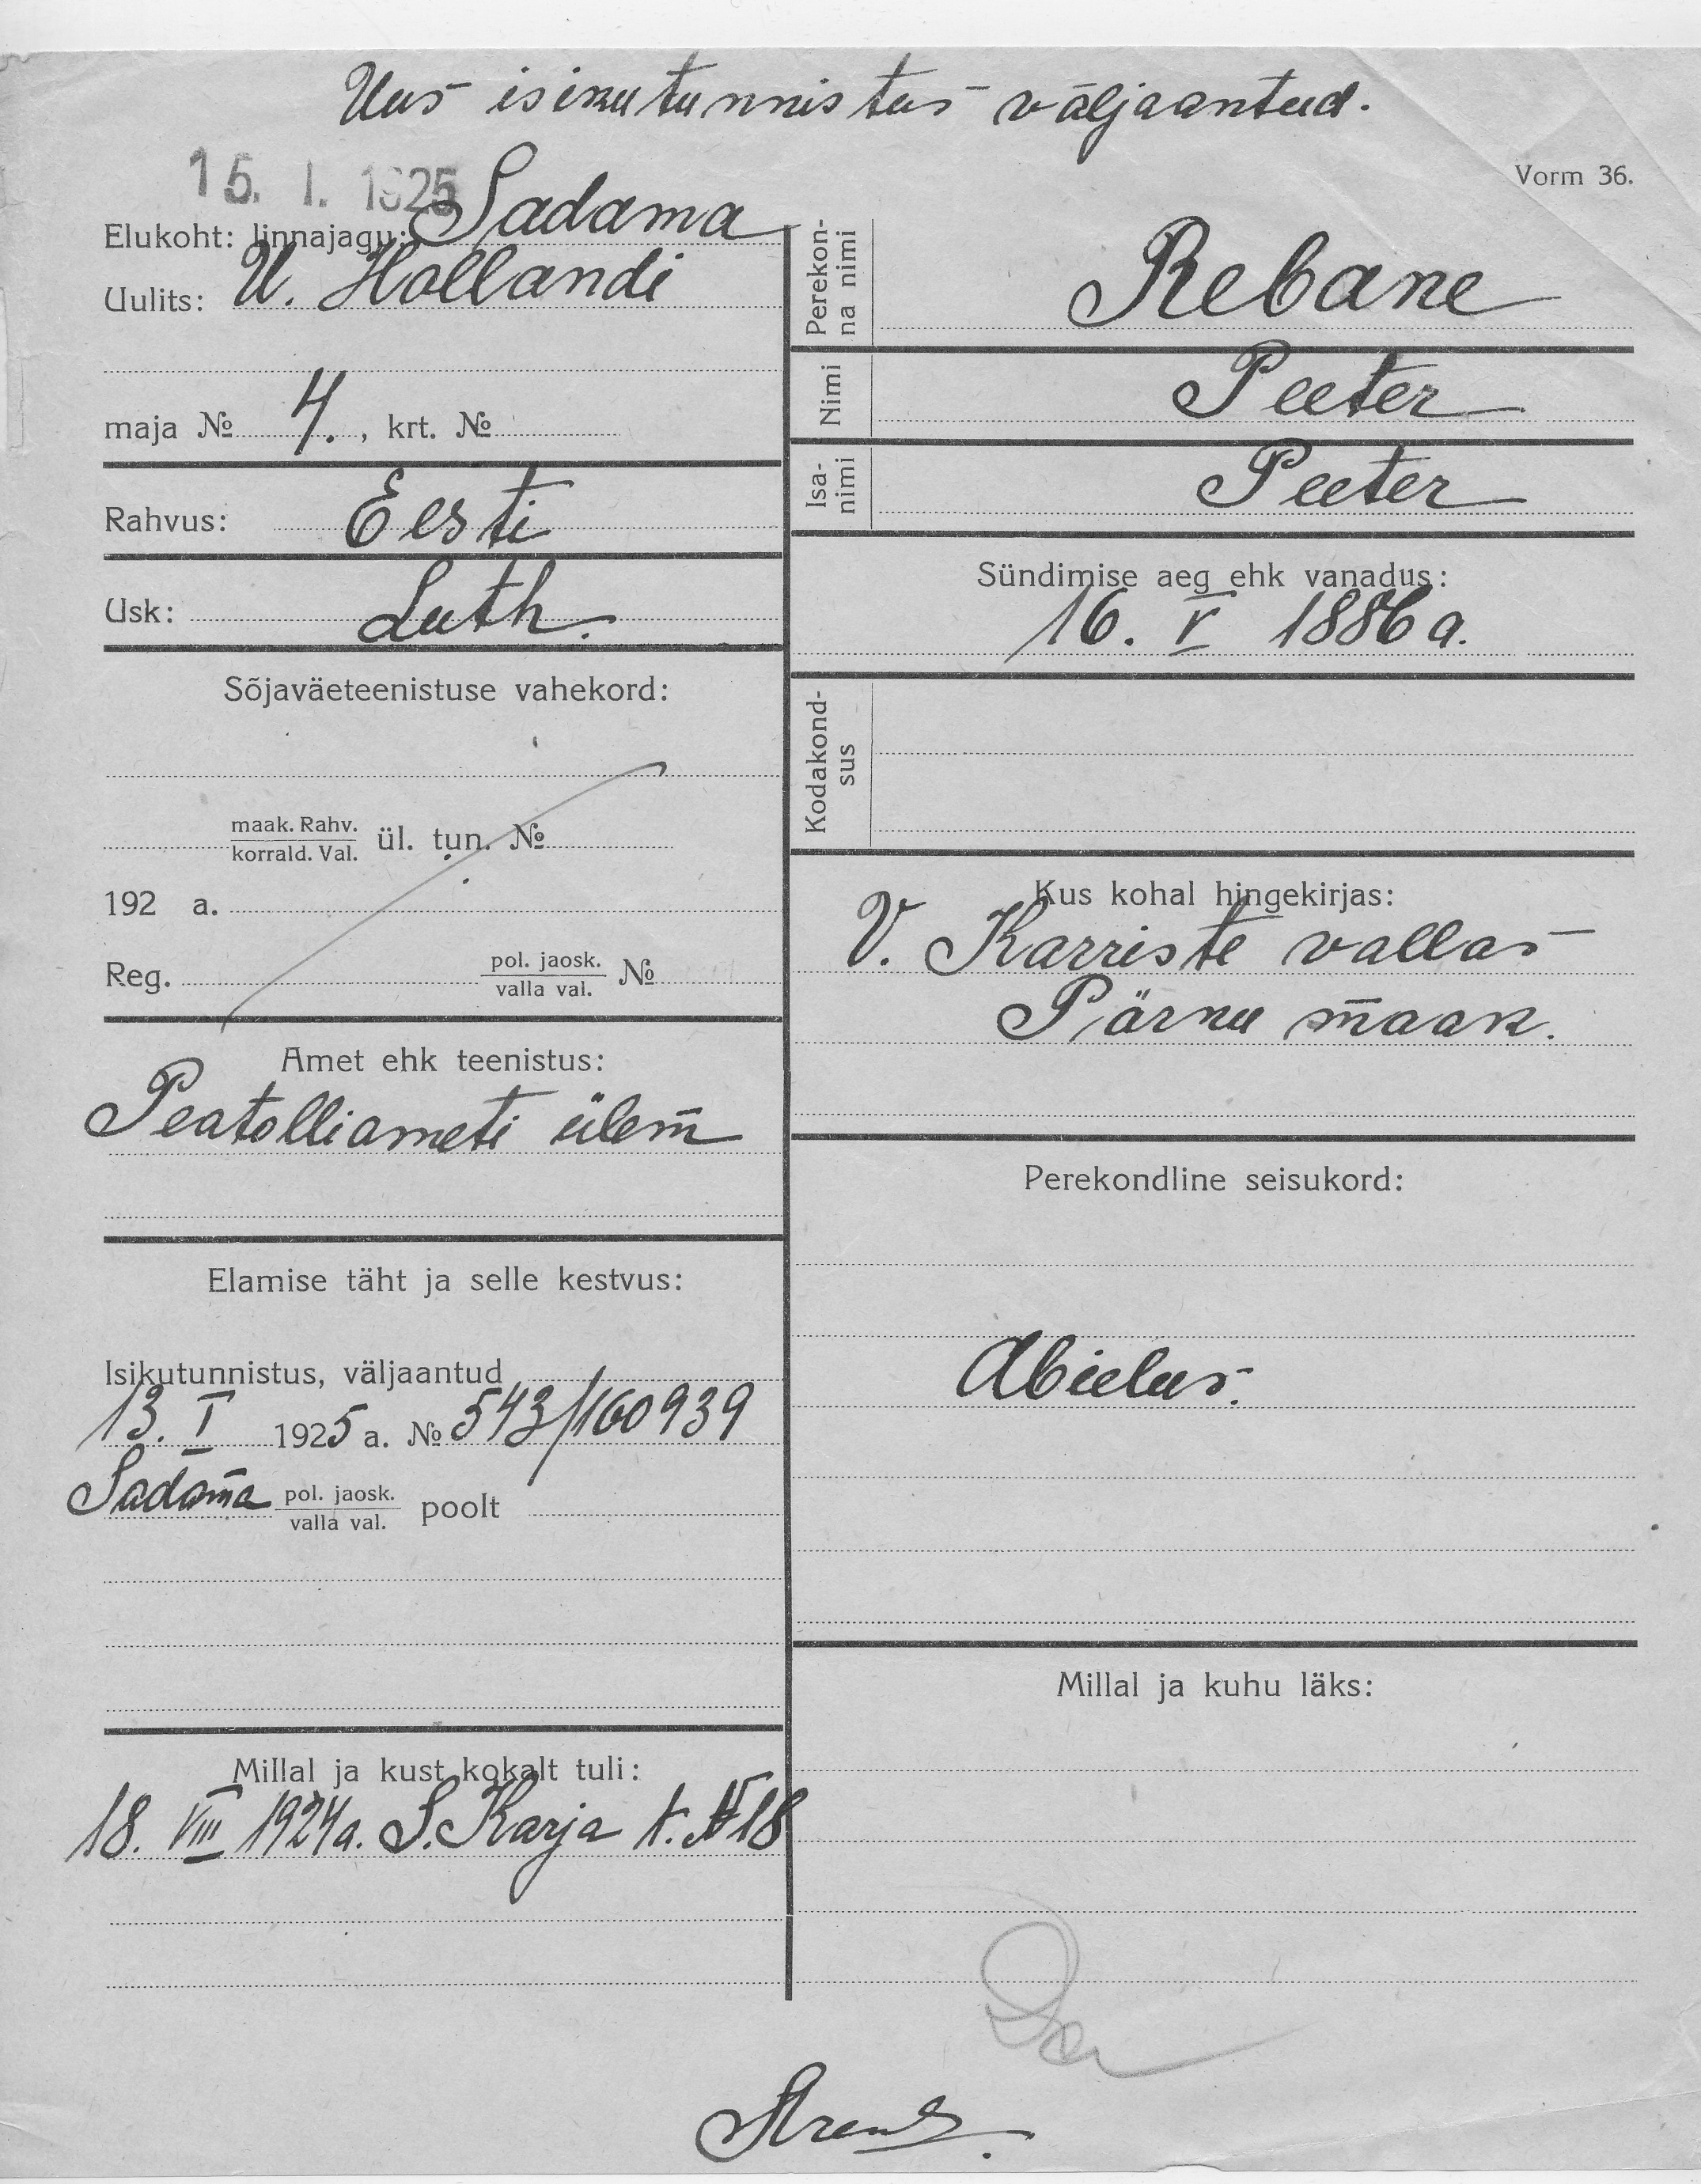 Uus isikutunnistus väljaantud.
15. I. 1925
Vorm 36.
Elukoht: linnajagu: Sadama
Uulits: U. Hollandi
maja № 4., krt. №
Rahvus: Eesti
Usk: Luth.
Sõjaväeteenistuse vahekord:
maak. Rahv.
korrald. Val.
ül. tun. №
192 a.
Reg. pol. jaosk.
valla val. №
Amet ehk teenistus:
Peatolliameti ülem
Elamise täht ja selle kestvus:
Isikutunnistus, väljaantud
13. I 1925 a. № 543/160939
Sadama pol. jaosk.
valla val. poolt
Millal ja kust kokalt tuli:
18. VIII 1924 a. S. Karja t. № 18
Perekon-
na nimi
Rebane
Nimi
Peeter
Isa-
nimi
Peeter
Sündimise aeg ehk vanadus:
16. V 1886 a.
Kodakond-
sus
Kus kohal hingekirjas:
V. Karriste vallas
Pärnu maak.
Perekondline seisukord:
Abielus.
Millal ja kuhu läks: